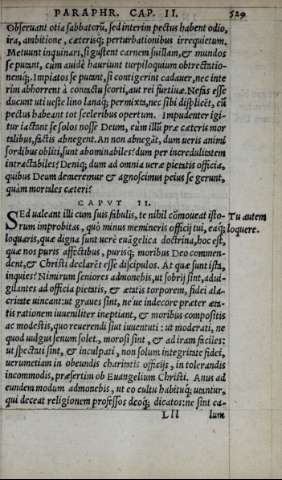 PARAPHR. CAP. II. 529
Obseruant otia sabbatorũ, sed interim pectus habent odio,
ira, ambitione, cæterisq; perturbationibus irrequietum.
Metuunt inquinari, si gustent carnem suillam, & mundos
se putant, cùm auidè hauriunt turpiloquium obtrectatio-
nemq;. Impiatos se putant, si contigerint cadauer, nec inte
rim abhorrent à conuictu scorti, aut rei furtiuæ. Nefas esse
ducunt uti ueste lino lanaq; permixta, nec sibi displicēt, cũ
pectus habeant tot sceleribus opertum. Impudenter igi-
tur iactant se solos nosse Deum, cùm illũ præ cæteris mor
talibus, factis abnegent. An non abnegāt, dum ueris animi
sordibus obliti, sunt abominabiles? dum per incredulitatem
intractabiles? Deniq; dum ad omnia ueræ pietatis officia,
quibus Deum demeremur & agnoscimus peius se gerunt,
quàm mortales cæteri?
CAPVT II.
SEd ualeant illi cum suis fabulis, te nihil cõmoueat isto- Tu autem
rum improbitas, quò minus memineris officij tui, eaq; loquere.
loquaris, quæ digna sunt uere euāgelica doctrina, hoc est,
quæ nos puris affectibus, purisq; moribus Deo commen-
dent, & Christi declarēt esse discipulos. At quæ sunt ista,
inquies? Nimirum seniores admonebis, ut sobrij sint, adui-
gilantes ad officia pietatis, & ætatis torporem, fidei ala-
critate uincant: ut graues sint, ne ue indecore præter æta-
tis rationem iuueniliter ineptiant, & moribus compositis
ac modestis, quo reuerendi sint iuuentuti: ut moderati, ne
quod uulgus senum solet, morosi sint, & ad iram faciles:
ut spectati sint, & inculpati, non solum integritate fidei,
uerumetiam in obeundis charitatis officijs, in tolerandis
incommodis, præsertim ob Euangelium Christi. Anus ad
eundem modum admonebis, ut eo cultu habituq; utantur,
qui deceat religionem professos deoq; dicatos: ne sint ca-
Lll lum